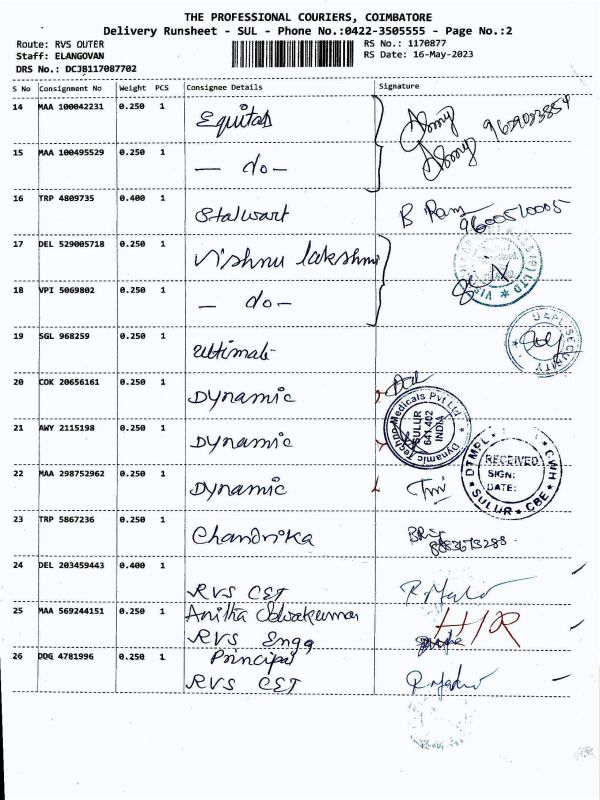 THE PROFESSIONAL COURIERS, COIMBATORE
Delivery Runsheet - SUL - Phone No.:0422-3505555 - Page No.:2
Route: RVS OUTER RS No.: 1170877
Staff: ELANGOVAN RS Date: 16-May-2023
DRS No.: DCJB117087702
S No Consignment No Weight PCS Consignee Details Signature
14 MAA 100042231 0.250 1 Equitas
15 MAA 100495529 0.250 1 — do —
16 TRP 4809735 0.400 1 Stalwart B Ram 9600510005
17 DEL 529005718 0.250 1 Vishnu lakshmi
18 VPI 5069802 0.250 1 — do —
19 SGL 968259 0.250 1 Ultimate
SECURITY
20 COK 20656161 0.250 1 Dynamic
Dynamic Techno Medicals Pvt Ltd
SULUR
641.402
INDIA
21 AWY 2115198 0.250 1 Dynamic
DTMPL CWH
RECEIVED
SIGN:
DATE:
SULUR * CBE
22 MAA 298752962 0.250 1 Dynamic
23 TRP 5867236 0.250 1 Chandrika
24 DEL 203459443 0.400 1
RVS CET
25 MAA 569244151 0.250 1 Anitha
RVS Engg H/R
26 DDG 4781996 0.250 1 Principal
RVS CET